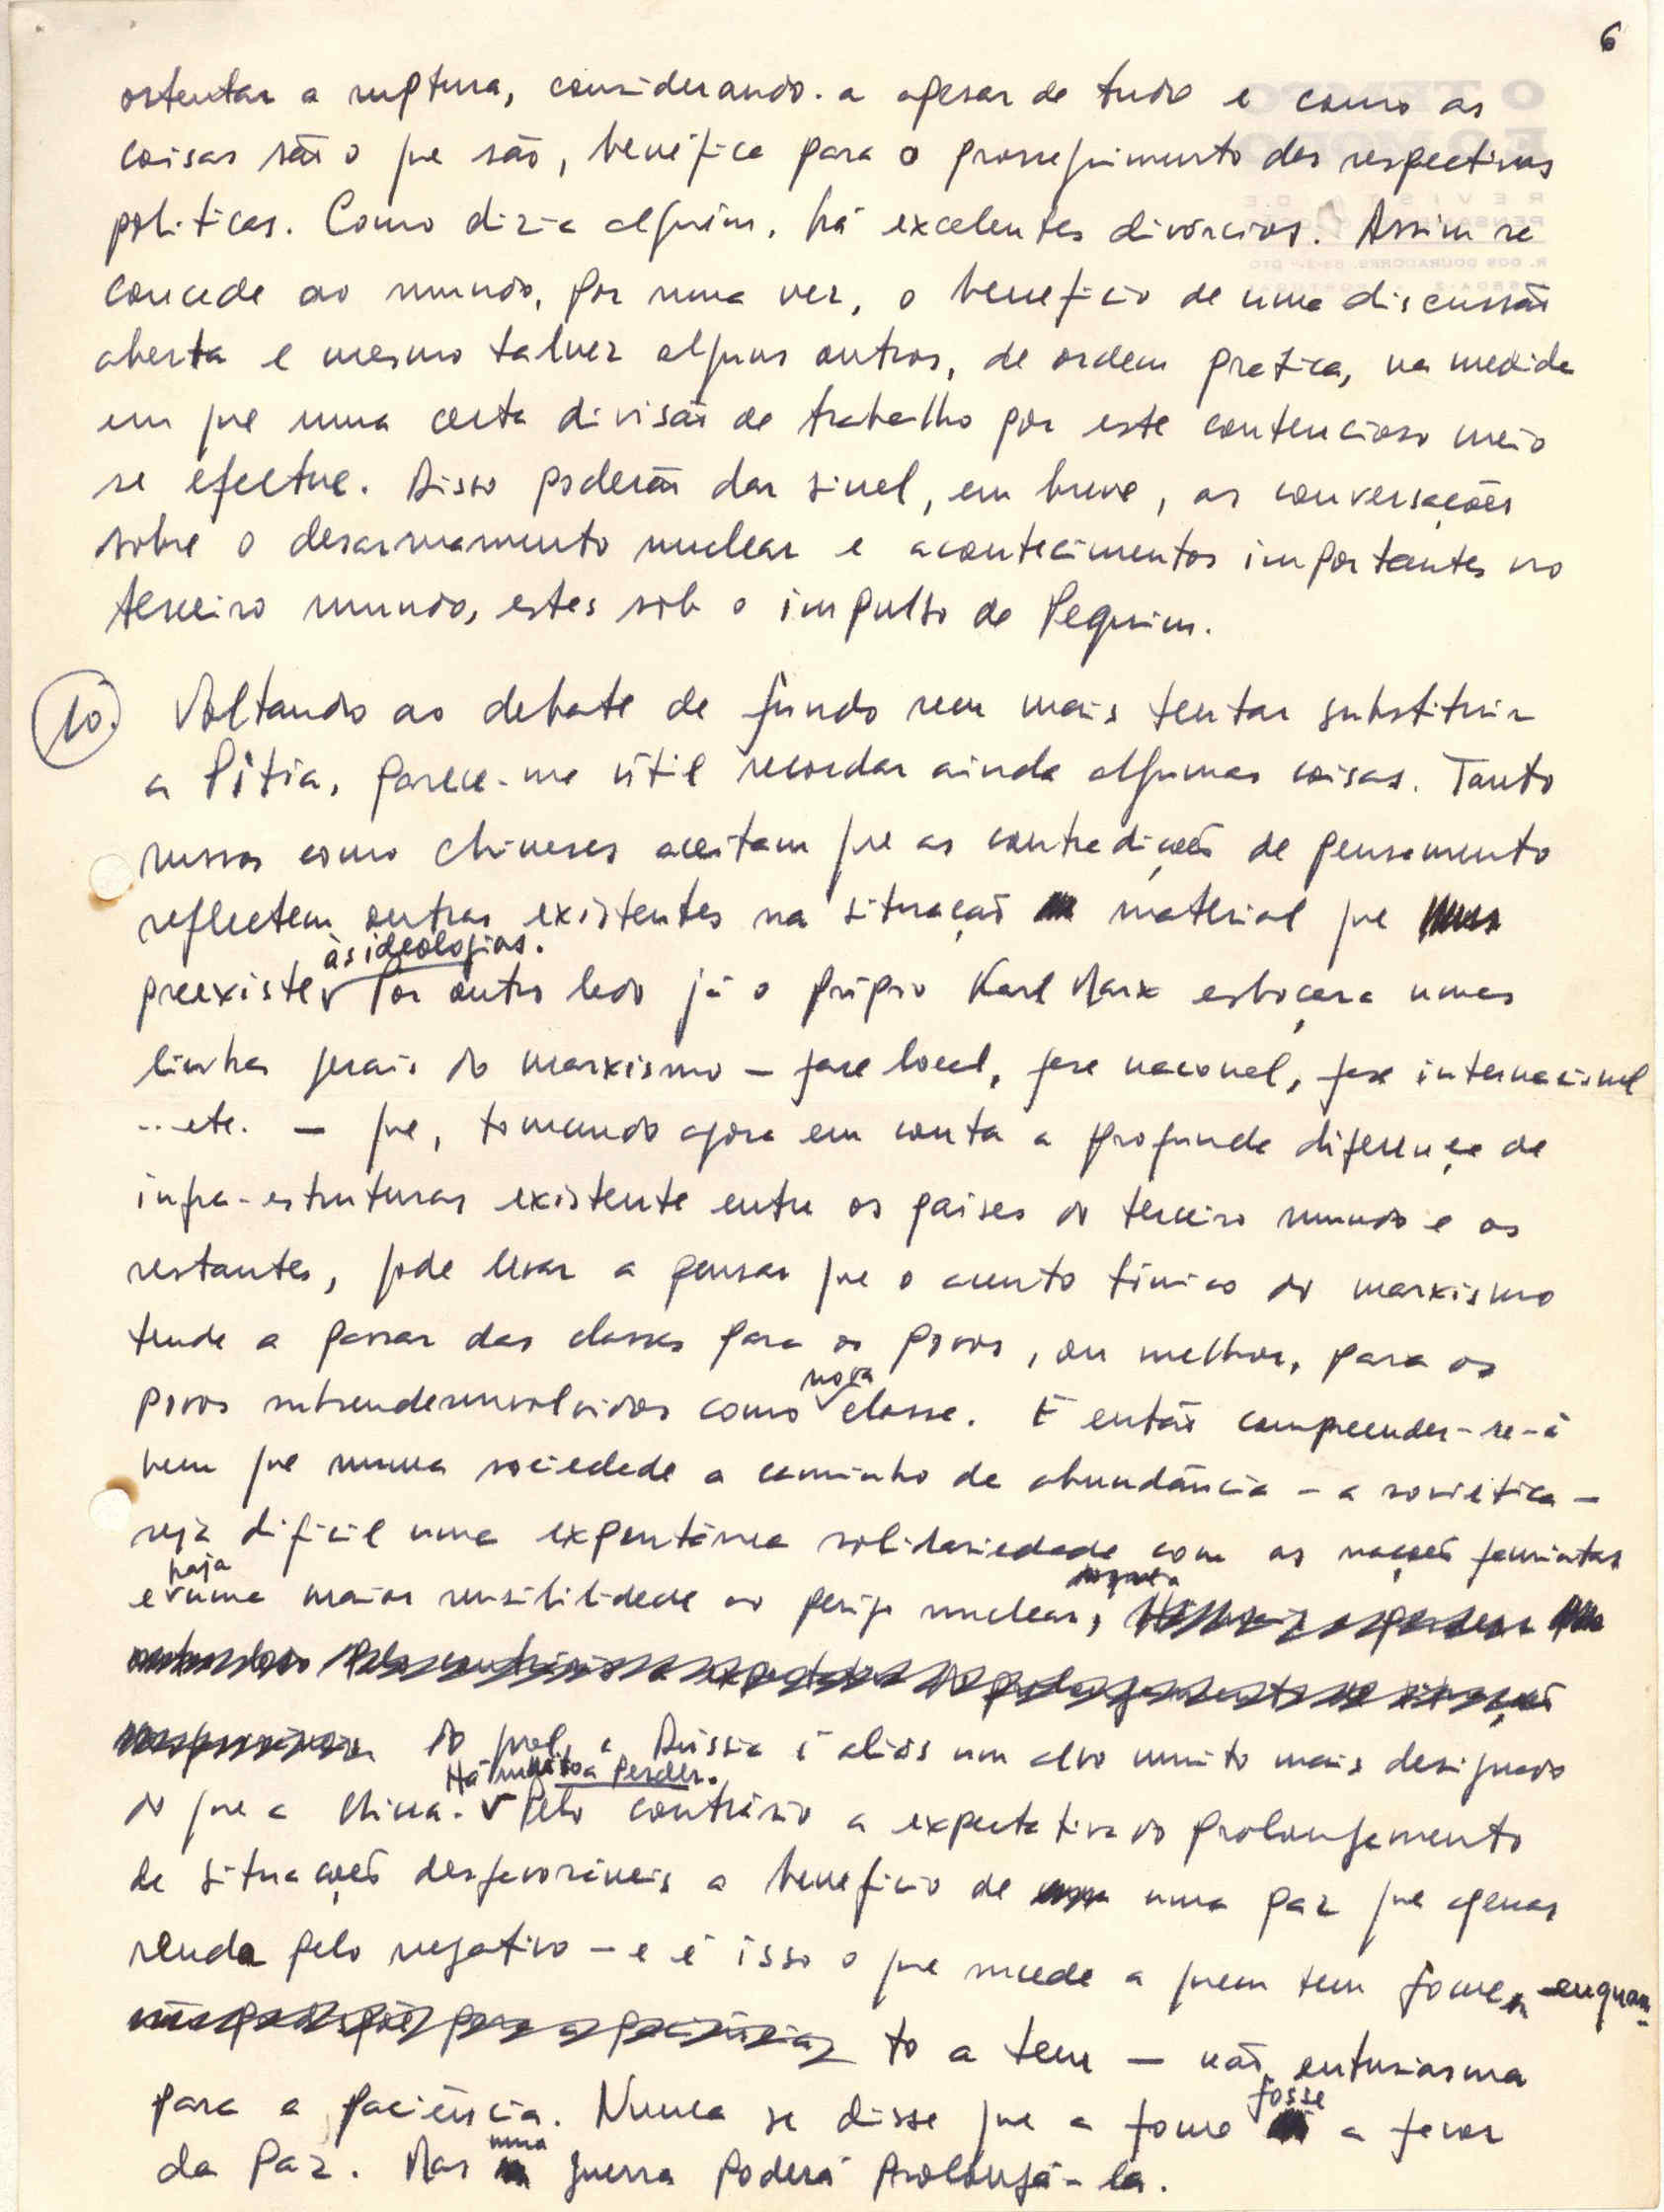 6
ostentar a ruptura, considerando-a apesar de tudo e como as
coisas são o que são, benéfica para o prosseguimento das respectivas
politicas. Como dizia alguém, há excelentes divórcios. Assim se
concede ao mundo, por uma vez, o beneficio de uma discussão
aberta e mesmo talvez alguns outros, de ordem pratica, na medida
em que uma certa divisão de trabalho por este contencioso meio
se efectue. Disso poderão dar sinal, em breve, as conversações
sobre o desarmamento nuclear e acontecimentos importantes no
terceiro mundo, estes sob o impulso de Pequim.
10. Voltando ao debate de fundo sem mais tentar substituir
a Pítia, parece-me útil recordar ainda algumas coisas. Tanto
russos como chineses aceitam que as contradições de pensamento
reflectem outras existentes na situação material que
às ideologias.
preexiste Por outro lado já o próprio Karl Marx esboçara umas
linhas gerais do marxismo — fase local, fase naconal, fase internacional
...etc. — que, tomando agora em conta a profunda diferença de
infra-estruturas existente entre os paises do terceiro mundo e os
restantes, pode levar a pensar que o acento tónico do marxismo
tende a passar das classes para os povos, ou melhor, para os
nova
povos subsendesenvolvidos como classe. E então compreender-se-á
bem que numa sociedade a caminho de abundância — a soviética —
seja dificil uma expontânea solidariedade com as nações famintas
haja
e uma maior sensibilidade ao perigo nuclear,
do qual, a Rússia é aliás um alvo muito mais designado
Há muito a perder.
do que a China. Pelo contrário a expectativa do prolongamento
de situações desfavoráveis a beneficio de uma paz que apenas
renda pelo negativo — e é isso o que sucede a quem tem fome, enquan-
to a tem — não entusiasma
fosse
para a paciência. Nunca se disse que a fome a favor
uma
da Paz. Mas guerra poderá prolongá-la.